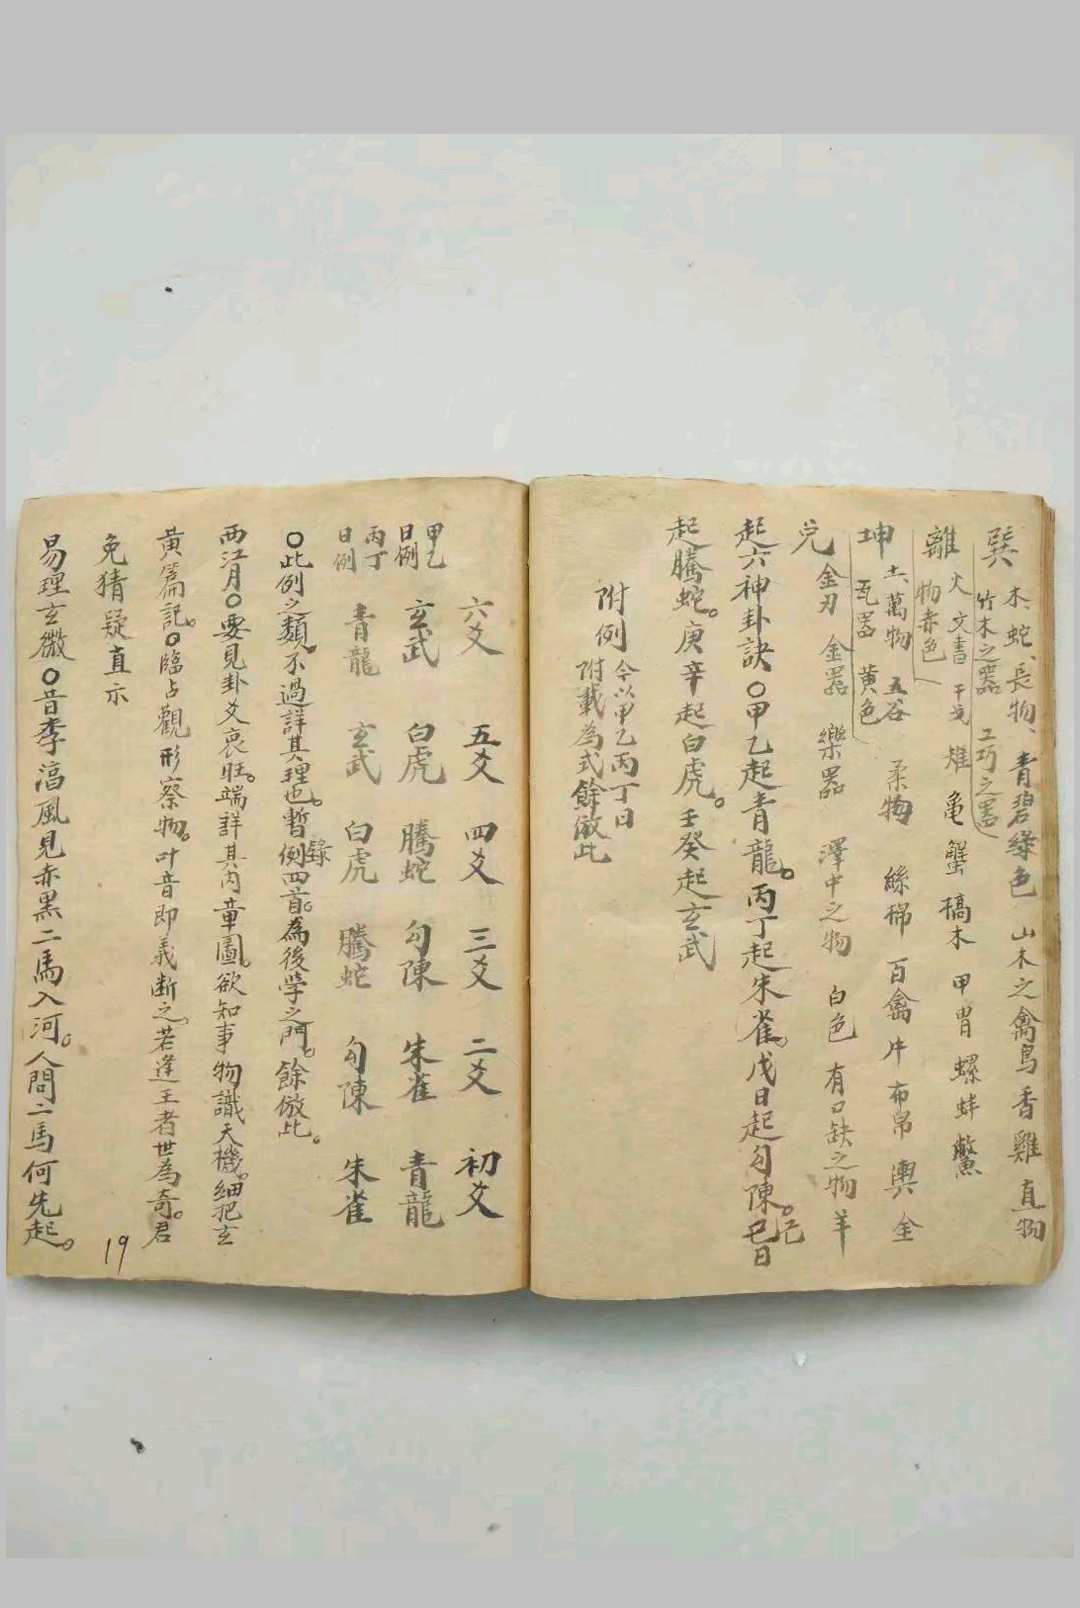 巽 木、蛇、長物、青碧綠色 山木之禽鳥香雞直物
竹木之器 工巧之器
離 火 文書 干戈 雉 亀 蟹 槁木 甲胄 螺 蚌 鱉
物赤色
坤 土 萬物 五谷 柔物 絲棉 百禽 牛 布帛 輿 金
瓦器 黄色
兑 金刃 金器 樂器 澤中之物 白色 有口缺之物 羊
起六神卦訣〇甲乙起青龍。丙丁起朱雀。戊日起勾陳。己日
起騰蛇。庚辛起白虎。壬癸起玄武
附例 今以甲乙丙丁日
附載為式餘倣此
六爻 五爻 四爻 三爻 二爻 初爻
甲乙日例 玄武 白虎 騰蛇 勾陳 朱雀 青龍
丙丁日例 青龍 玄武 白虎 騰蛇 勾陳 朱雀
〇此例之類。不過詳其理也。暫錄例四首。為後學之門。餘倣此。
西江月〇要見卦爻衰旺。端詳其內章圖。欲知事物識天機。細把玄
黄篇記。〇臨占觀形察物。叶音即義断之。若逢王者世為奇。君
免猜疑直示
易理玄微〇昔李淳風見赤黑二馬入河。人問二馬何先起。
19